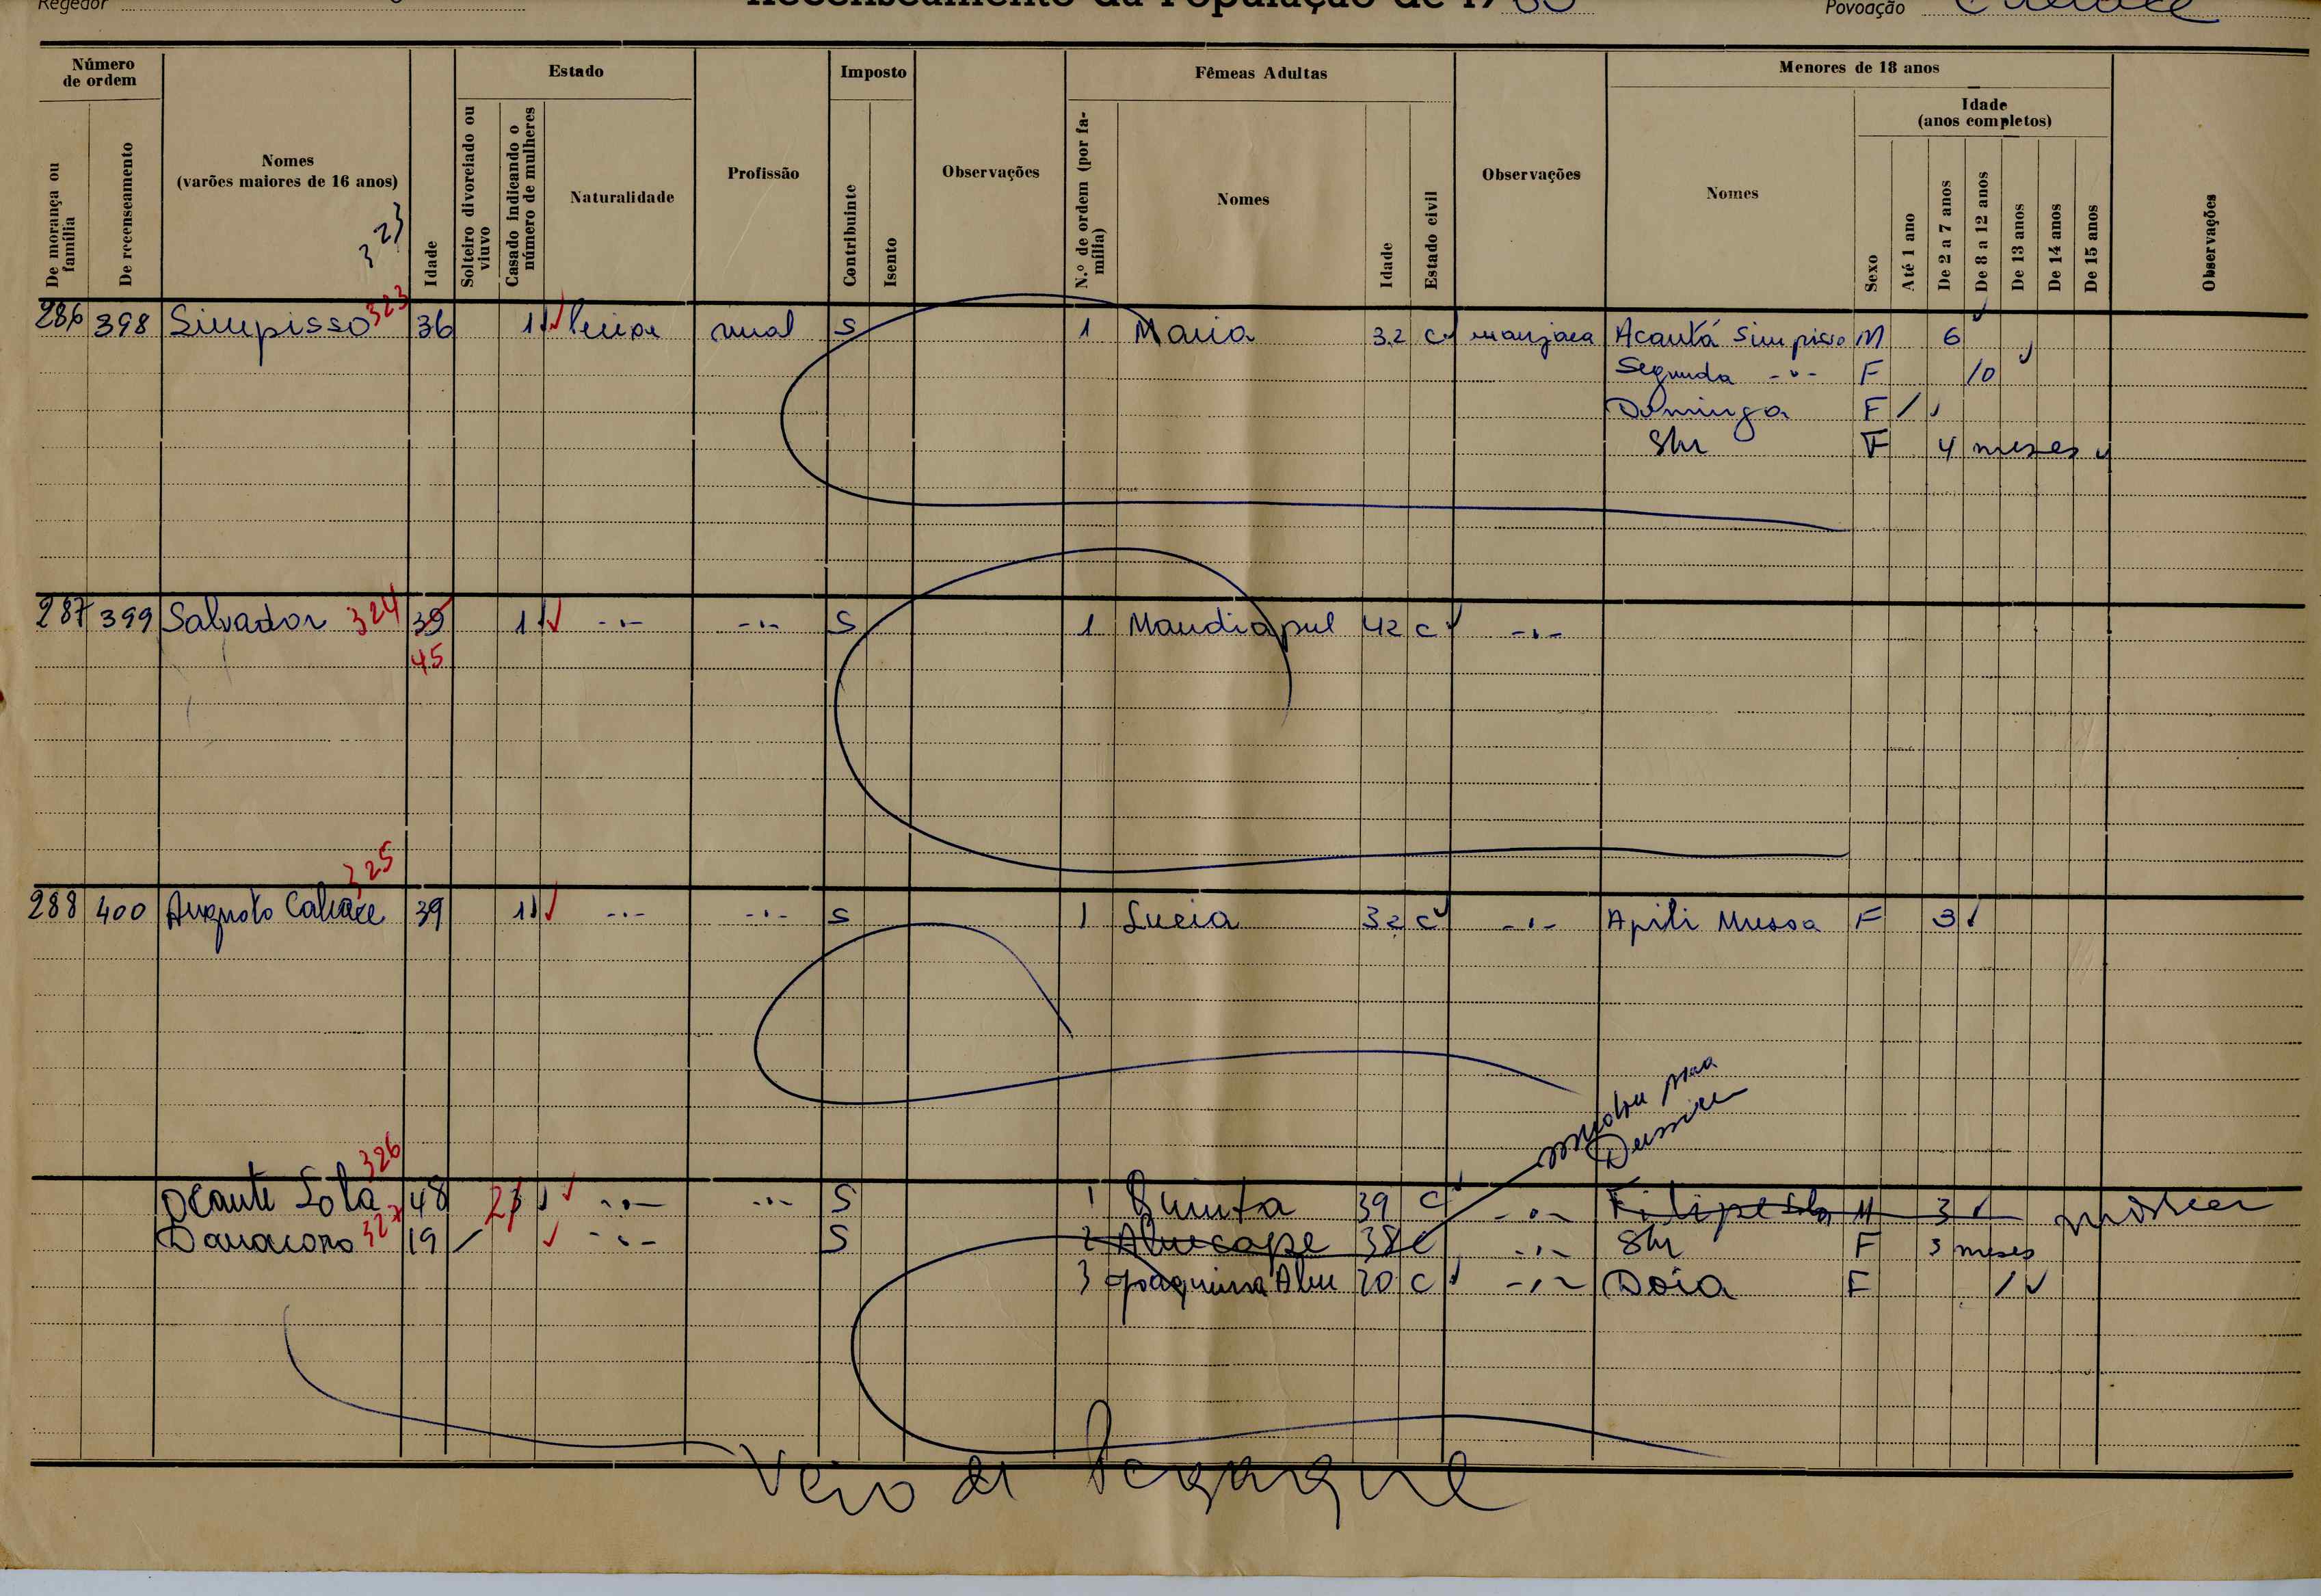 Regedor
Recenseamento da População de 1960
Povoação
Número de ordem
Estado
Imposto
Fêmeas Adultas
Menores de 18 anos
De morança ou família
De recenseamento
Nomes
(varões maiores de 16 anos)
323
Idade
Solteiro divorciado ou viuvo
Casado indicando o número de mulheres
Naturalidade
Profissão
Contribuinte
Isento
Observações
N.º de ordem (por família)
Nomes
Idade
Estado civil
Observações
Nomes
Idade
(anos completos)
Sexo
Até 1 ano
De 2 a 7 anos
De 8 a 12 anos
De 13 anos
De 14 anos
De 15 anos
Observações
286 398 Simpisso 323 36 1 rural S 1 Maria 32 C manjaca Acantá Simpisso M 6
Segunda -"- F 10
Dominga F /
Shr F 4 meses
287 399 Salvador 324 39 1 -"- -"- S 1 Mandiapul 42 C -"-
45
325
288 400 Augusto 39 1 -"- -"- S 1 Lucia 32 C -"- Apili Mussa F 3
326
48 -"- -"- S 1 Quinta 39 C -"- Filipe M 3
327 19 / -"- S 2 38 C -"- Shr F 3 meses
3 Joaquina 20 C -"- Doia F /
Veio de